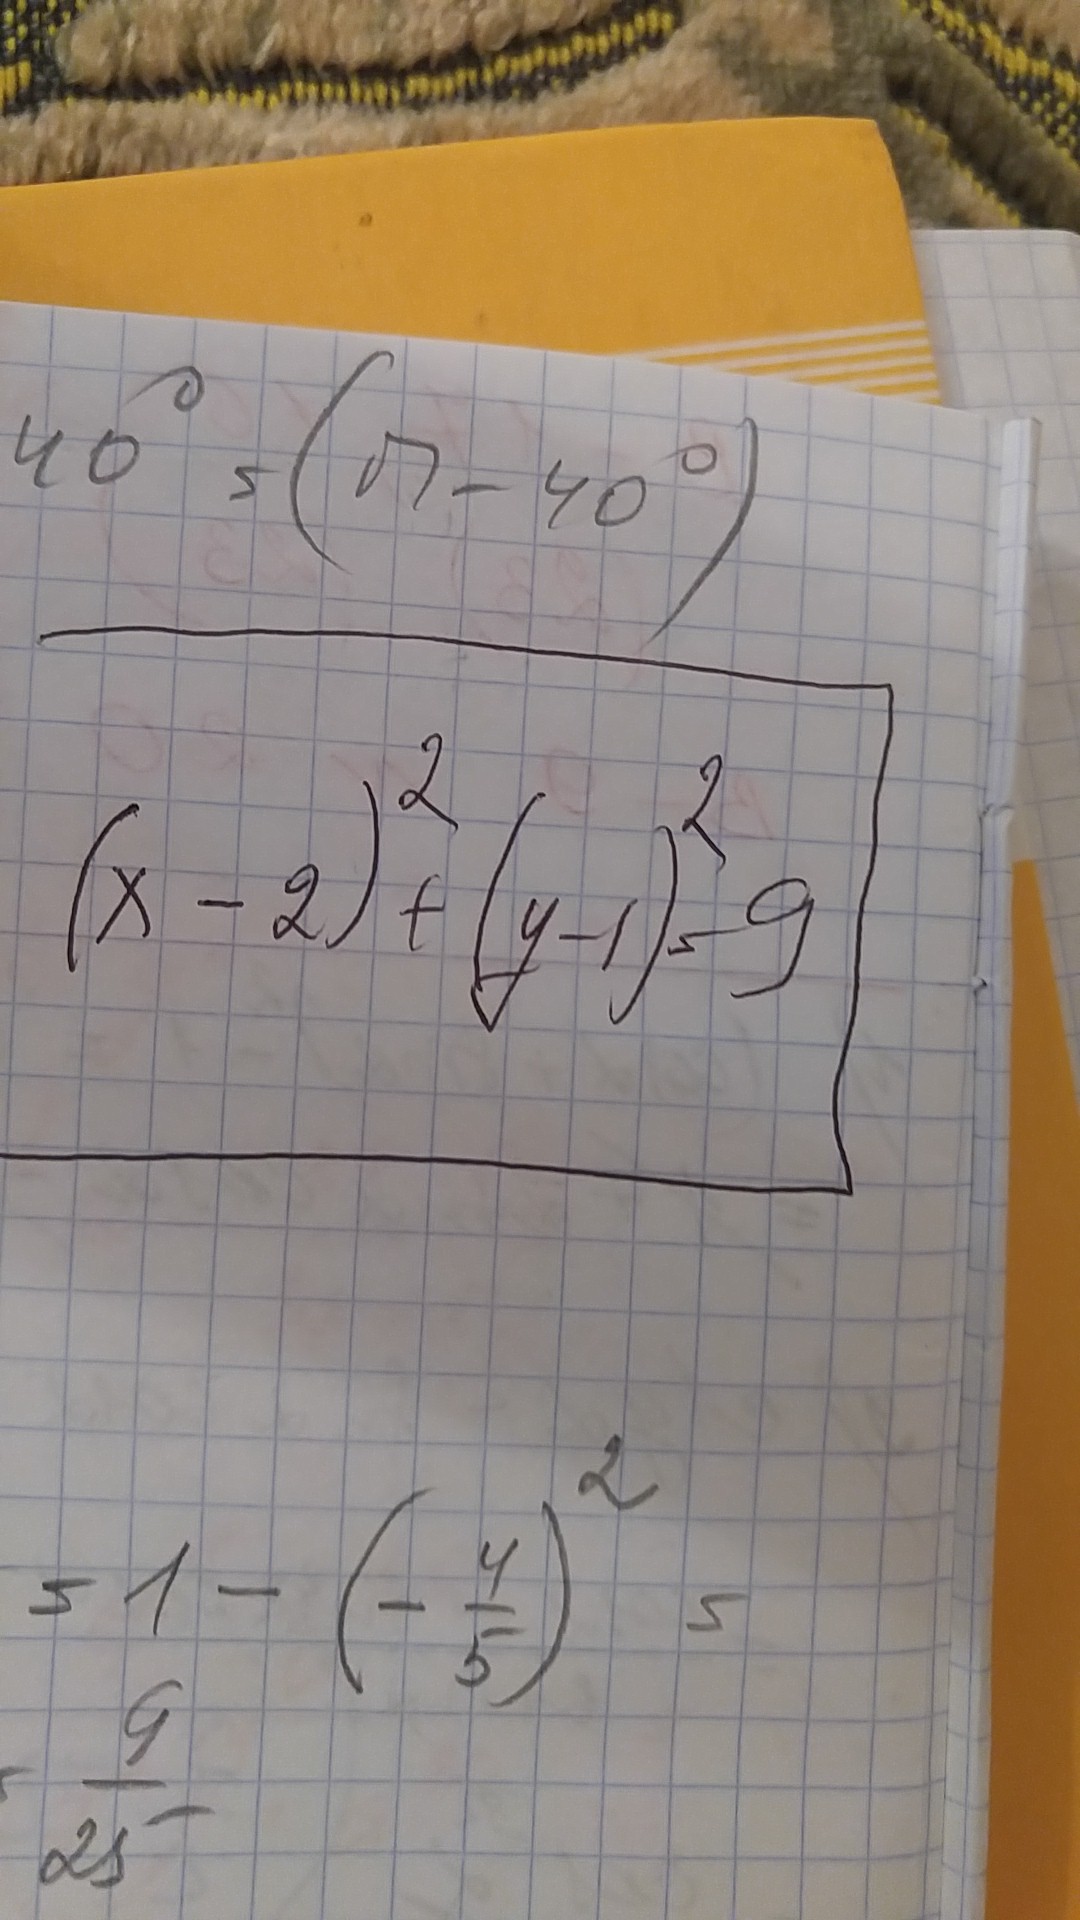 40° = (π - 40°)
(x - 2)² + (y - 1)² = 9
= 1 - (- 4/5)² =
= 9/25